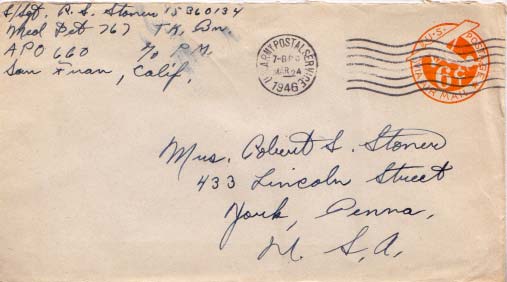 S/Sgt. R. S. Stoner 15360134
Med Det 767 TK. Bn.
APO 660 c/o P.M.
San Fran, Calif.
U.S. ARMY POSTAL SERVICE
MAR 24
1946
U.S. POSTAGE
6¢
VIA AIR MAIL
Mrs. Robert S. Stoner
433 Lincoln Street
York, Penna.
U. S. A.